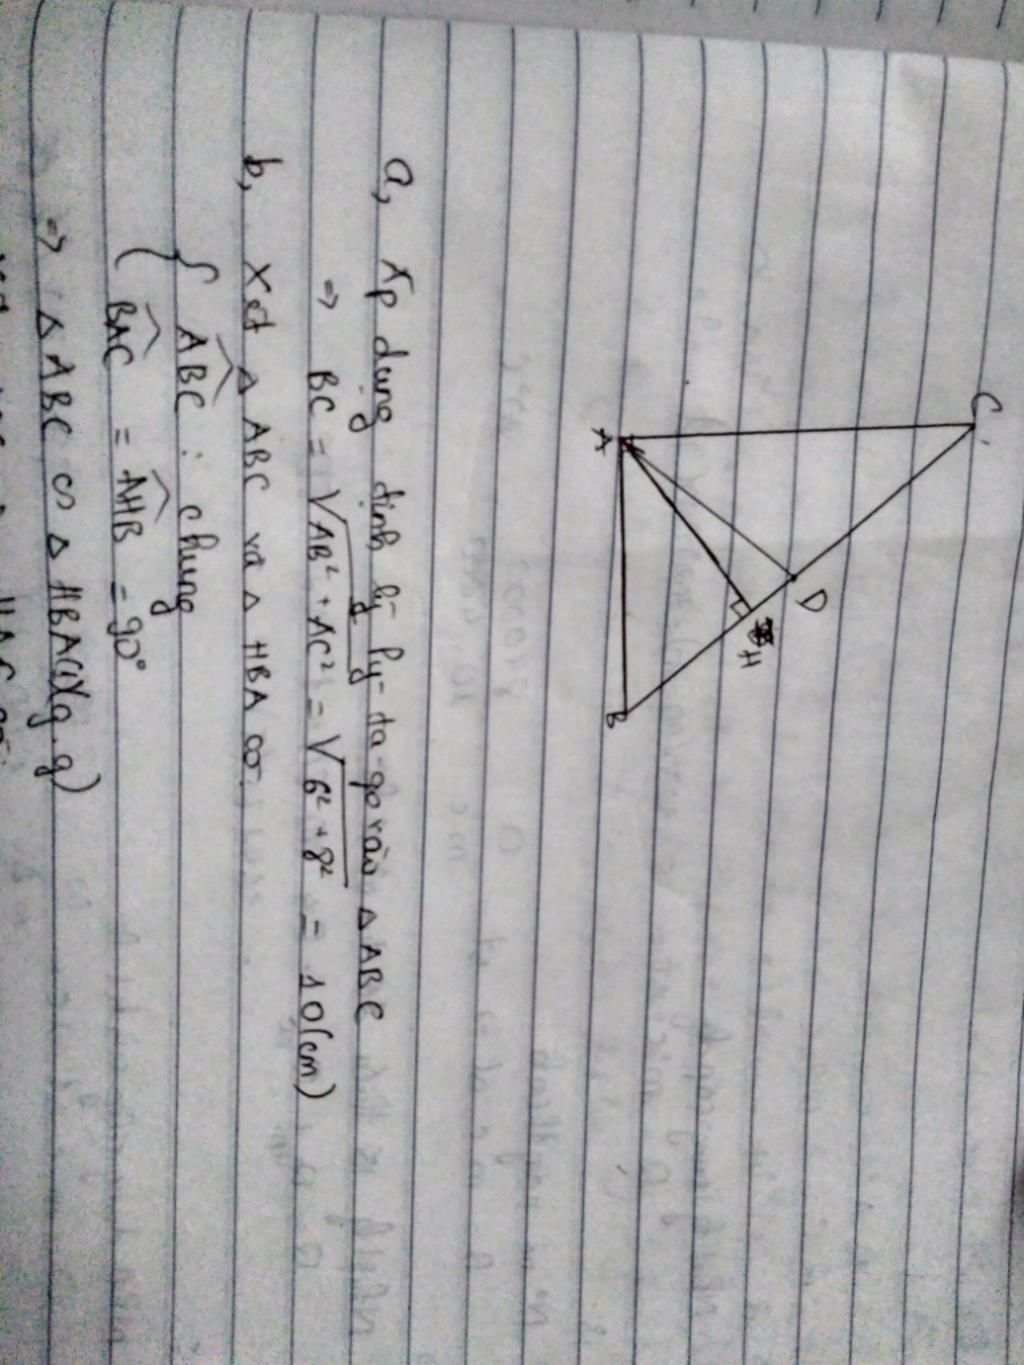 C
D
H
A
B
a, Áp dụng định lý Py-ta-go vào △ ABC
⇒ BC = √AB² + AC² = √6² + 8² = 10 (cm)
b, Xét △ ABC và △ HBA có
{ ABC : chung
BAC = AHB = 90°
⇒ △ ABC ∽ △ HBA (1) (g.g)